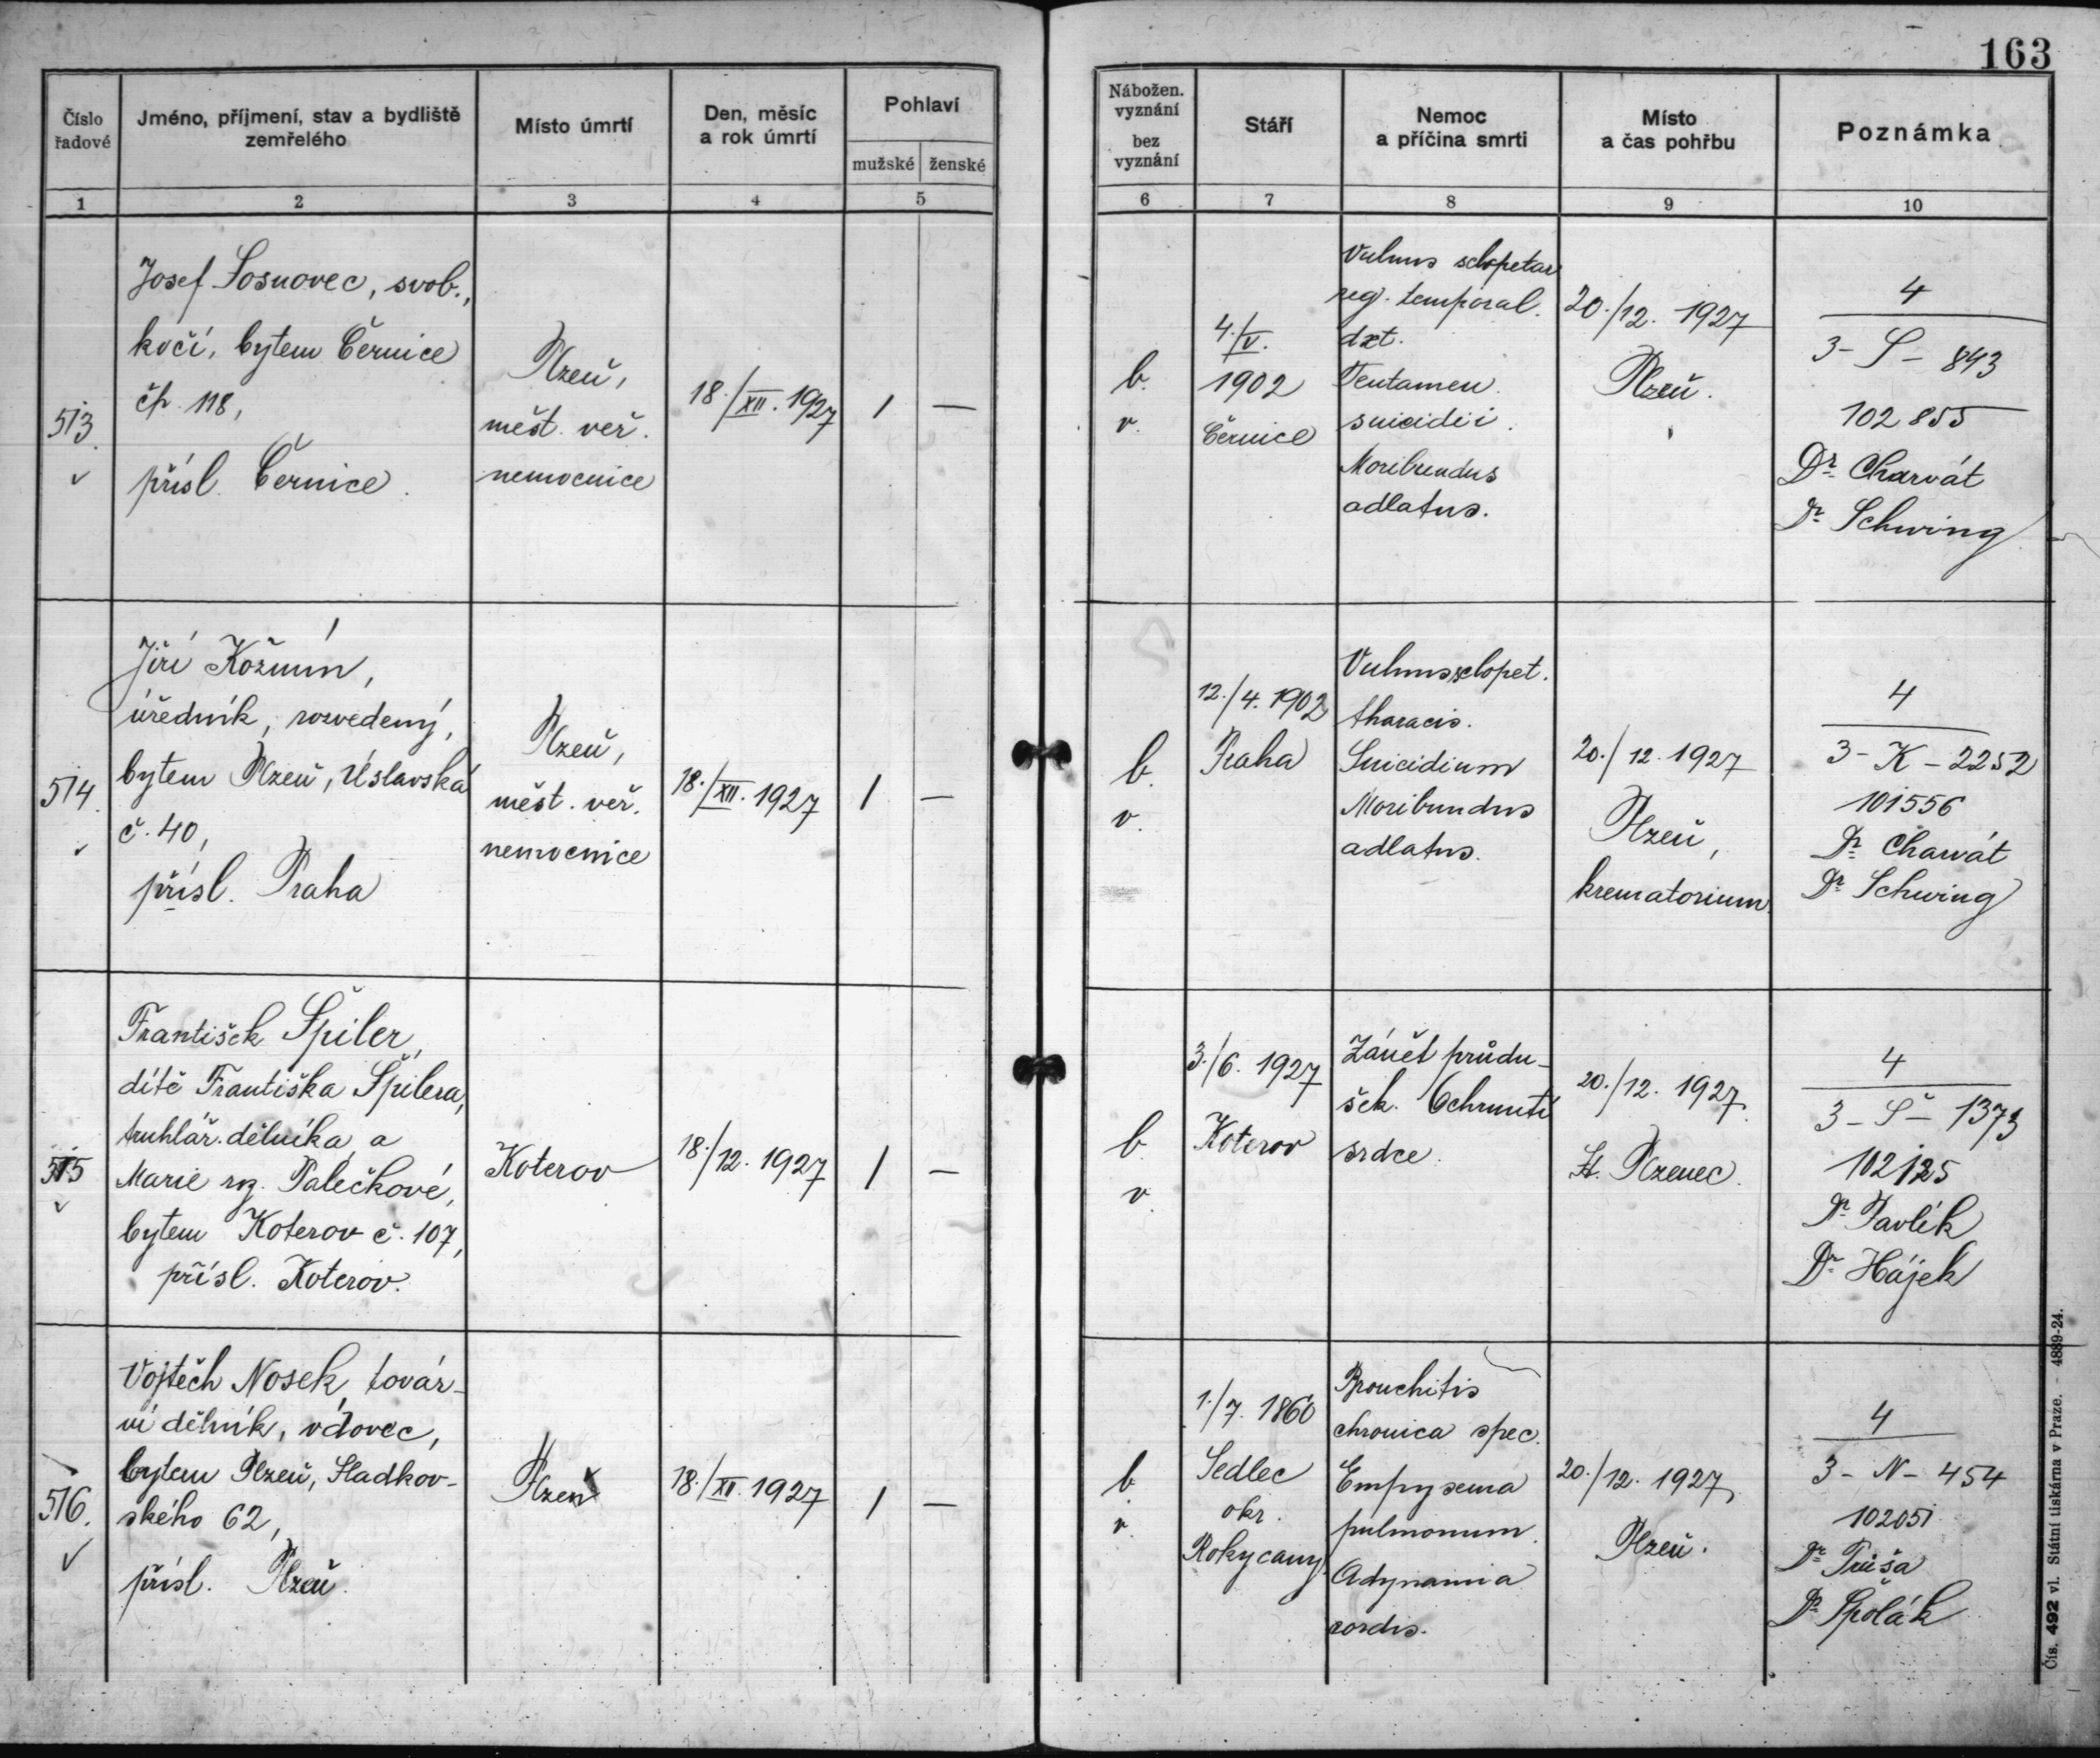 163
Číslo řadové
Jméno, příjmení, stav a bydliště zemřelého
Místo úmrtí
Den, měsíc a rok úmrtí
Pohlaví
mužské
ženské
Nábožen. vyznání
bez vyznání
Stáří
Nemoc a příčina smrti
Místo a čas pohřbu
Poznámka
1
2
3
4
5
6
7
8
9
10
513
Josef Sosnovec, svob.,
kočí, bytem Černice
čp. 118,
přísl. Černice.
Plzeň,
měst. veř.
nemocnice
18./XII. 1927
1
—
b.
v.
4./V.
1902
Černice
Vulnus sclopetar
reg. temporal.
dxt.
Tentamen
suicidii.
Moribundus
adlatus.
20./12. 1927
Plzeň.
4
3 - S - 843
102855
Dr. Charvát
Dr. Schwing
514.
Jiří Kožmín,
úředník, rozvedený,
bytem Plzeň, Úslavská
č. 40,
přísl. Praha
Plzeň,
měst. veř.
nemocnice
18./XII. 1927
1
—
b.
v.
12./4. 1902
Praha
Vulnus sclopet.
thoracis.
Suicidium
Moribundus
adlatus.
20./12. 1927
Plzeň,
krematorium.
4
3 - K - 2252
101556
Dr. Charvát
Dr. Schwing
515
František Špiler,
dítě Františka Špilera,
truhlář. dělníka, a
Marie roz. Palečkové,
bytem Koterov č. 107,
přísl. Koterov.
Koterov
18./12. 1927
1
—
b.
v.
3./6. 1927
Koterov
Zánět průdu-
šek. Ochrnutí
srdce.
20./12. 1927.
St. Plzenec.
4
3 - Š - 1373
102125
Dr. Pavlík
Dr. Hájek
516.
Vojtěch Nosek, továr-
ní dělník, vdovec,
bytem Plzeň, Sladkov-
ského 62,
přísl. Plzeň.
Plzeň
18./XII. 1927
1
—
b.
v.
1./7. 1860
Sedlec
okr.
Rokycany
Bronchitis
chronica spec.
Empysema
pulmonum.
Adynamia
cordis.
20./12. 1927
Plzeň.
4
3 - N - 454
102051
Dr. Průša
Dr. Špolák
Čís. 492 vl. Státní tiskárna v Praze. - 4889-24.